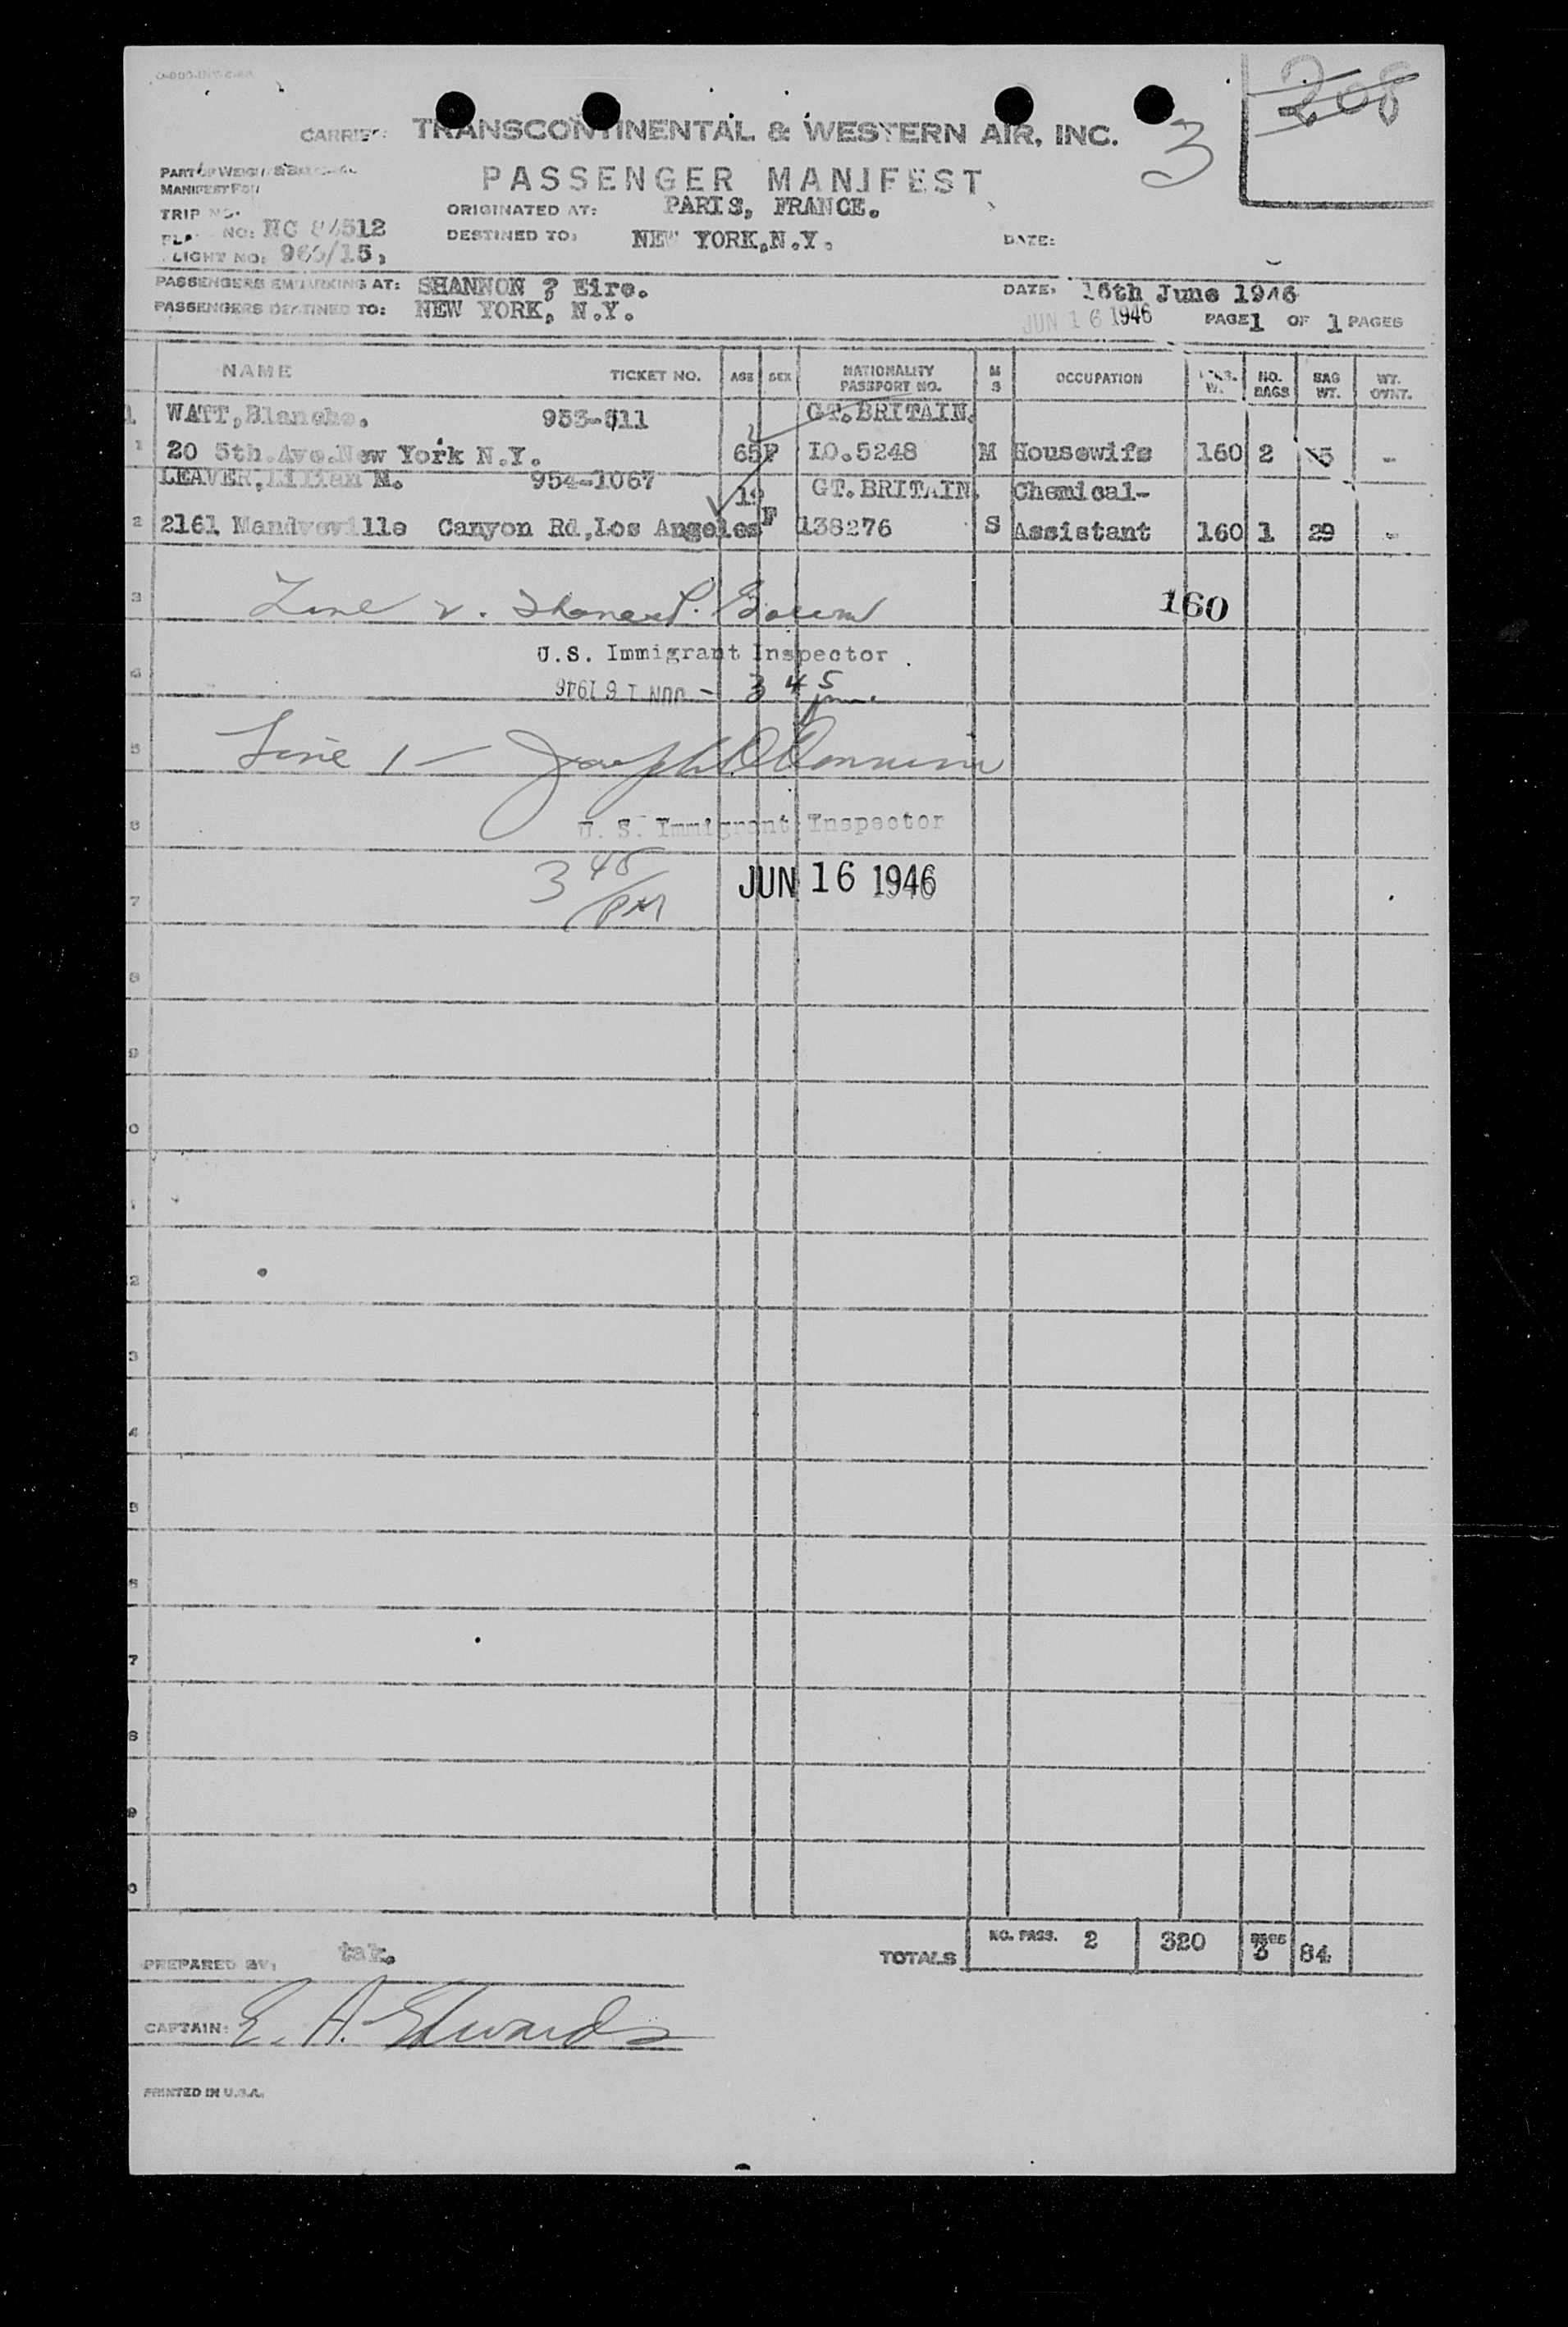 208
3
CARRIER: TRANSCONTINENTAL & WESTERN AIR, INC.
PASSENGER MANIFEST
MANIFEST FOR
TRIP NO.
ORIGINATED AT: PARIS, FRANCE.
NO: NC 512
DESTINED TO: NEW YORK,N.Y. DATE:
FLIGHT NO:
PASSENGERS EMBARKING AT: SHANNON ? Eire. DATE: 16th June 1946
PASSENGERS DESTINED TO: NEW YORK, N.Y. JUN 16 1946 PAGE 1 OF 1 PAGES
NAME TICKET NO. AGE SEX NATIONALITY PASSPORT NO. M S OCCUPATION W. NO. BAGS BAG WT. WT. OVRT.
1 WATT,Blanche. 953-511 GT.BRITAIN.
1 20 5th.Ave.New York N.Y. 65 F IO.5248 M Housewife 160 2 -
LEAVER,Lilian M. 954-1067 19 GT.BRITAIN. Chemical-
2 2161 Mandveville Canyon Rd,Los Angeles F 138276 S Assistant 160 1 29 -
3 Line 2. 160
U.S. Immigrant Inspector
4 JUN 16 1946 - 3 45 pm.
5 Line 1 - Joseph
6 U. S. Immigrant Inspector
7 3 45 PM JUN 16 1946
8
9
0
1
2
3
4
5
6
7
8
9
0
PREPARED BY: tak. TOTALS NO. PASS. 2 320 BAGS 3 84
CAPTAIN: E. A. Edwards
PRINTED IN U.S.A.